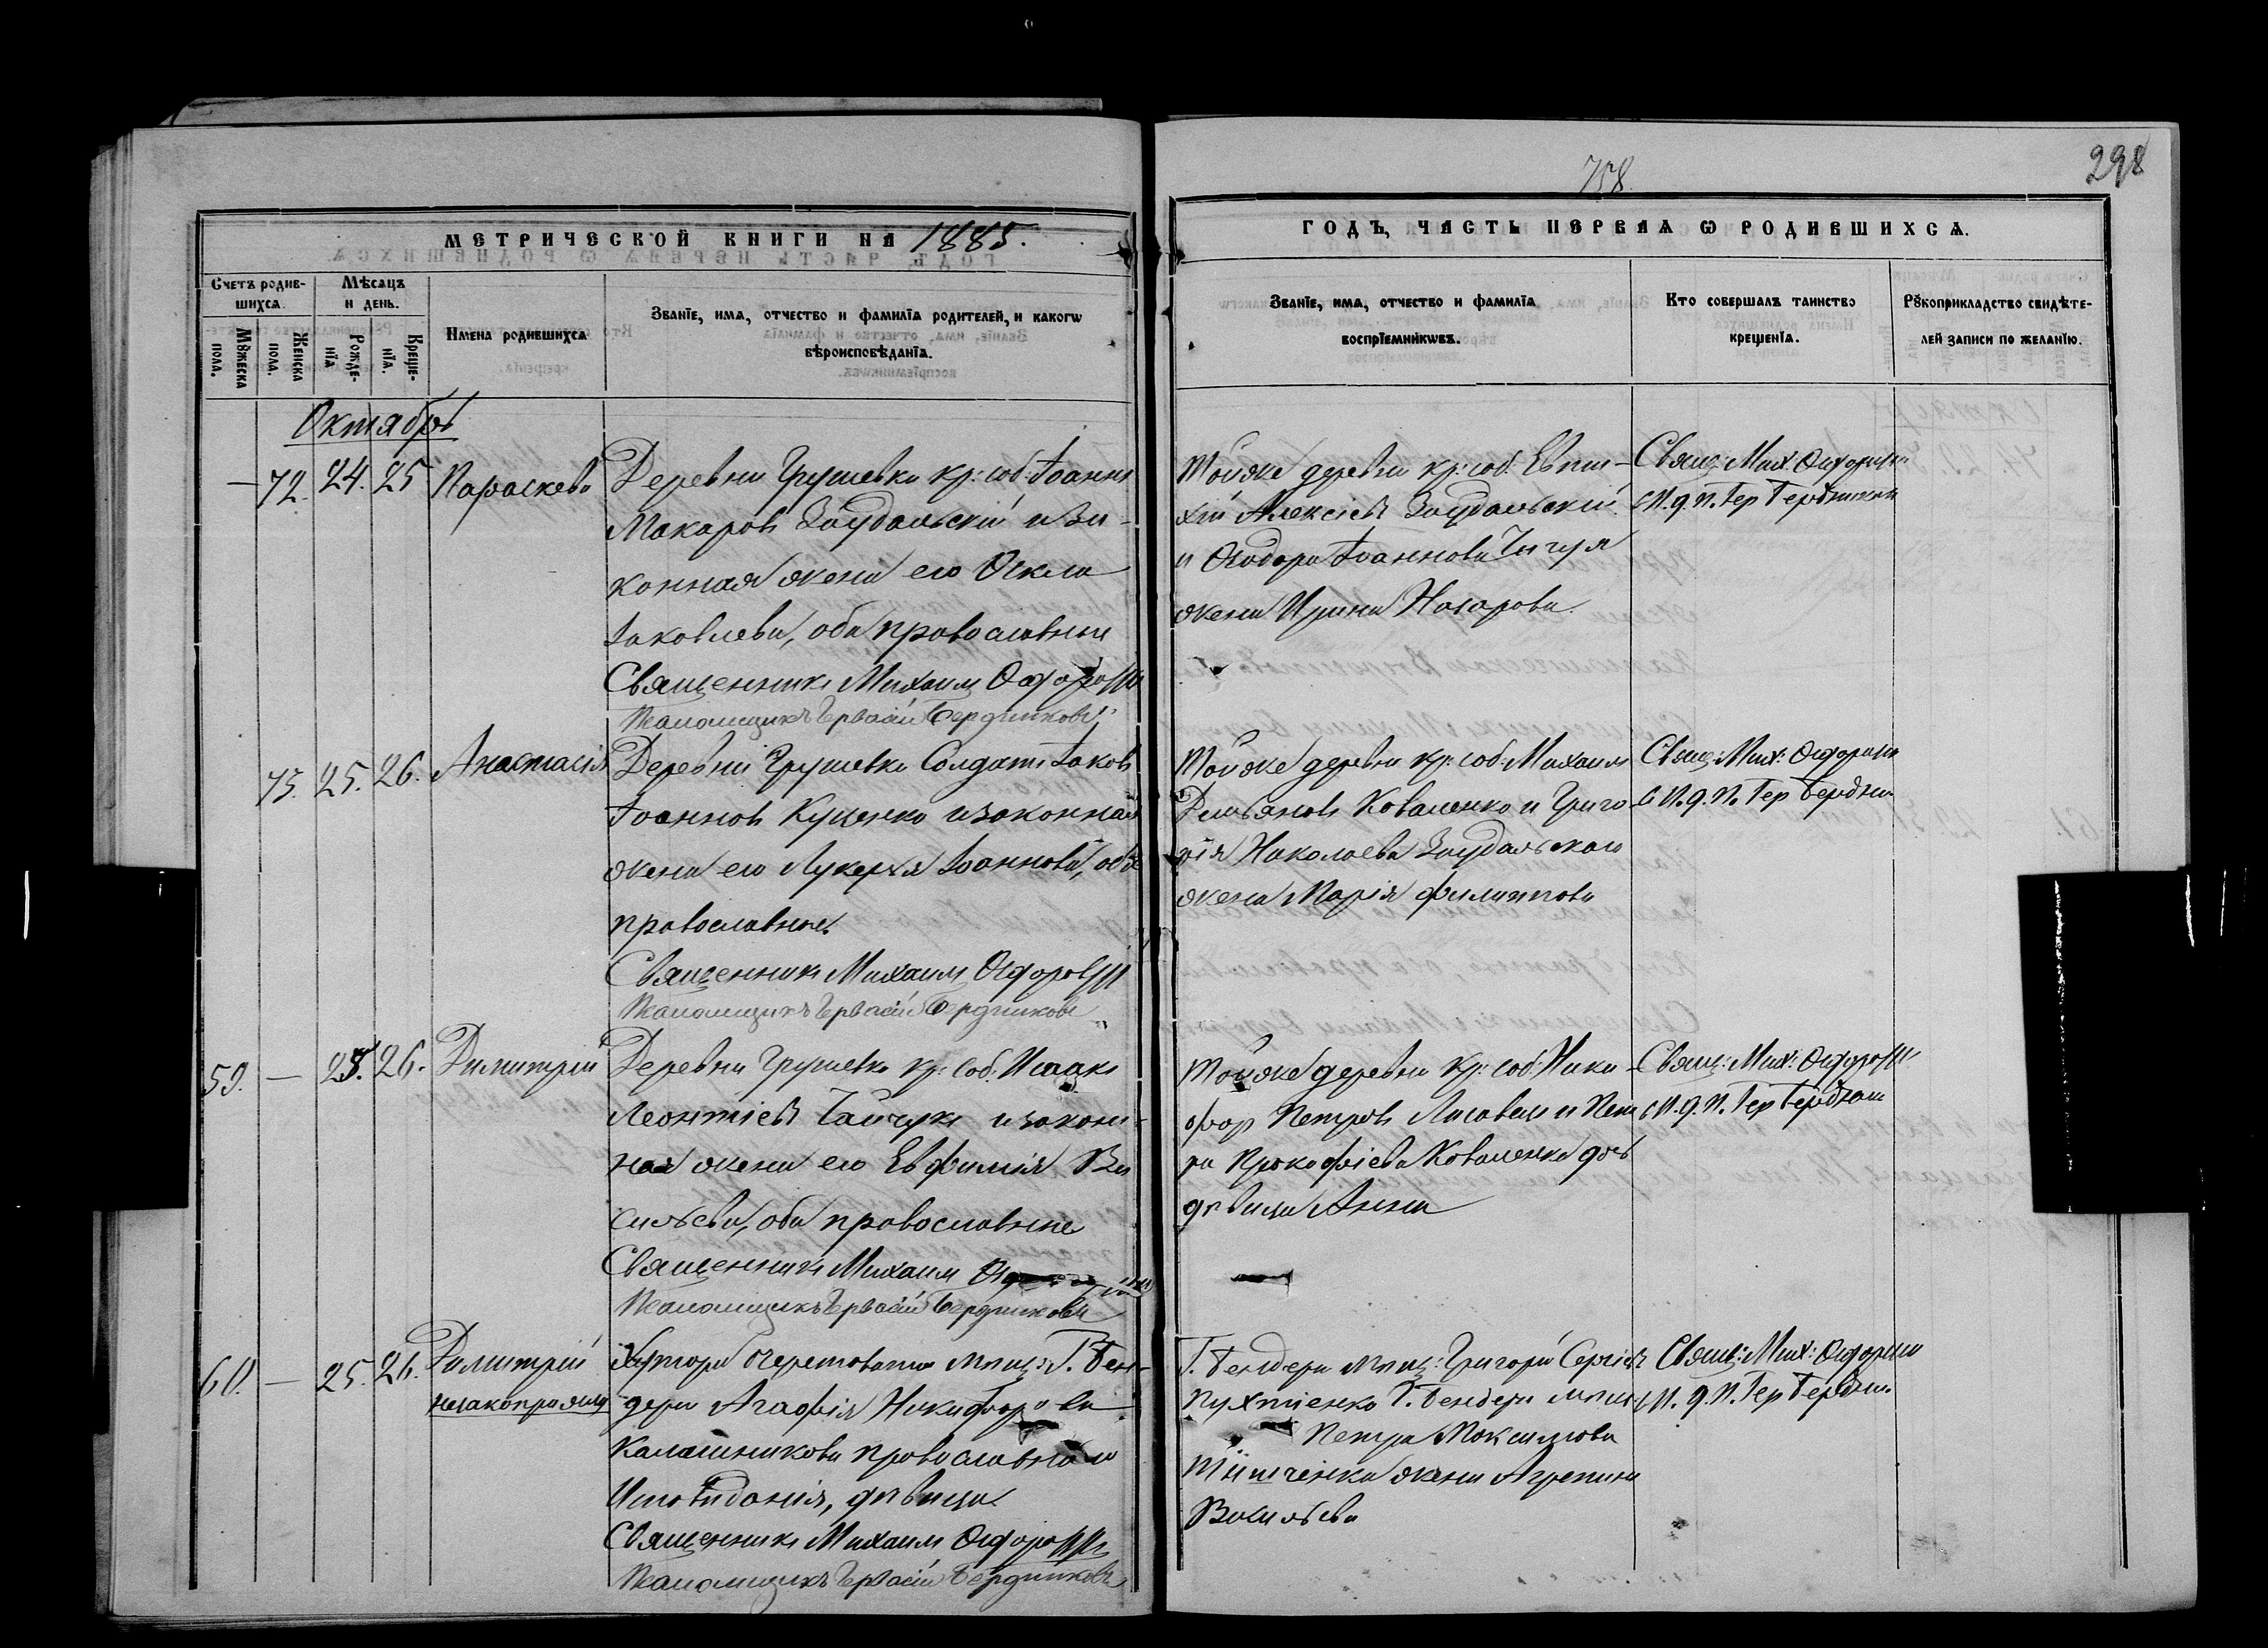 758.
298
МЕТРИЧЕСКОЙ КНИГИ НА 1885.
ГОДЪ, ЧАСТЬ ПЕРВАЯ Ѡ РОДИВШИХСѦ.
Счетъ родив-
шихсѧ.
Мѣсѧцъ
и день.
Мꙋжеска
пола.
Женска
пола.
Рожде-
нїѧ
Креще-
нїѧ.
Имена родившихсѧ
Званїе, имѧ, отчество и фамилїѧ родителей, и какогѡ
вѣроисповѣданїѧ.
Званїе, имѧ, отчество и фамилїѧ
воспрїемникѡвъ.
Кто совершалъ таинство
крещенїѧ.
Рꙋкоприкладство свидѣте-
лей записи по желанїю.
Октябрь
— 72. 24. 25 Параскева
Деревни Грушевки кр: соб: Іоаннъ
Макаровъ Загудальскій и за-
конная жена его Ѳекла
Іаковлева, оба православные
Священникъ Михаилъ
Псаломщикъ Гервасій Бердниковъ
Тойже деревни кр: соб: Евти-
хій Алексіевъ Загудальскій
и Ѳеодора Іоаннова
жена Ирина Назарова.
Свящ: Мих:
73. 25. 26. Анастасія
Деревни Грушевки Солдатъ Іаковъ
Іоанновъ Куценко и законная
жена его Лукерья Іоаннова, оба
православные.
Священникъ Михаилъ
Псаломщикъ Гервасій Бердниковъ
Тойже деревни кр: соб: Михаилъ
Демьяновъ Коваленко и Григо-
рія Николаева Загудальскаго
жена Марія Филиппова
Свящ: Мих:
59. — 25. 26. Димитрій
Деревни Грушевки кр: соб: Исаакъ
Леонтіевъ Гайчукъ и закон-
ная жена его Евфимія Ва
сильева, оба православные
Священникъ Михаилъ
Псаломщикъ Гервасій Бердниковъ
Тойже деревни кр: соб: Ники-
форъ Петровъ и Пет
ра Прокофіева Коваленка дочь
дѣвица Анна
Свящ: Мих:
60. — 25. 26. Димитрій
незаконорожд
Хутора Очеретоватаго мѣщ: Г. Бен-
деръ Агафія Никифорова
Калашникова православнаго
Исповѣданія, дѣвица.
Священникъ Михаилъ
Псаломщикъ Гервасій Бердниковъ
Г. Бендеръ мѣщ: Григорій Сергіевъ
Пухтіенко Г. Бендеръ мѣщ:
Петра Максимова
Тимченка жена Агрепина
Васильева
Свящ: Мих: